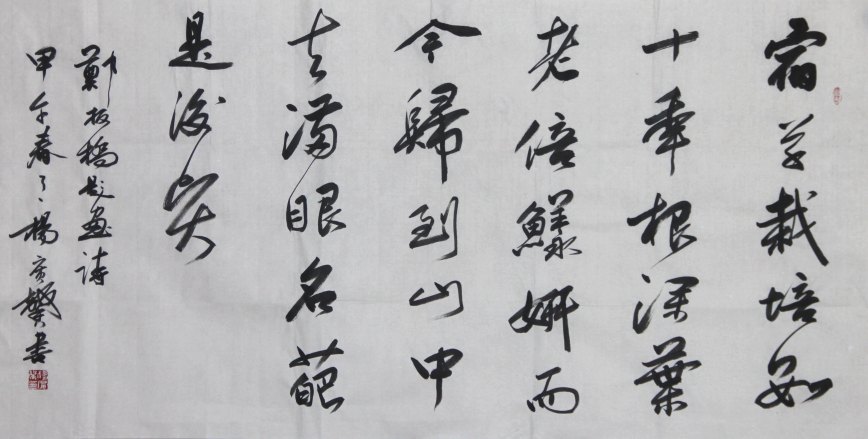 宿草栽培數
十年根深葉
老倍鮮妍而
今歸到山中
去滿眼名葩
是後賢
鄭板橋題畫詩
甲午春楊書